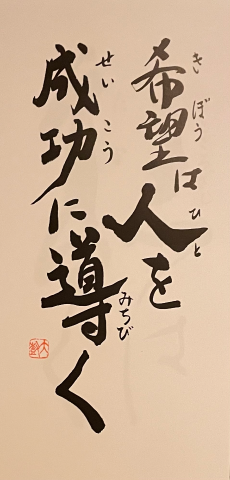 希望は人を
きぼう ひと
成功に導く
せいこう みちび